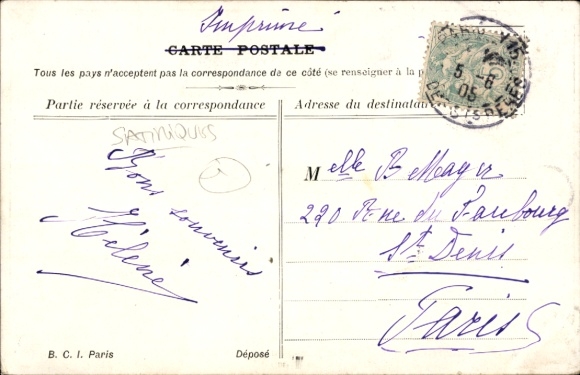 Imprimé
CARTE POSTALE
Tous les pays n'acceptent pas la correspondance de ce côté (se renseigner à la p
Partie réservée à la correspondance
Adresse du destinata
PARIS
5-6
05
SATIRIQUES
Bons souvenirs
Hélène
Melle B Mayer
290 Rue du Faubourg
St Denis
Paris
B. C. I. Paris
Déposé